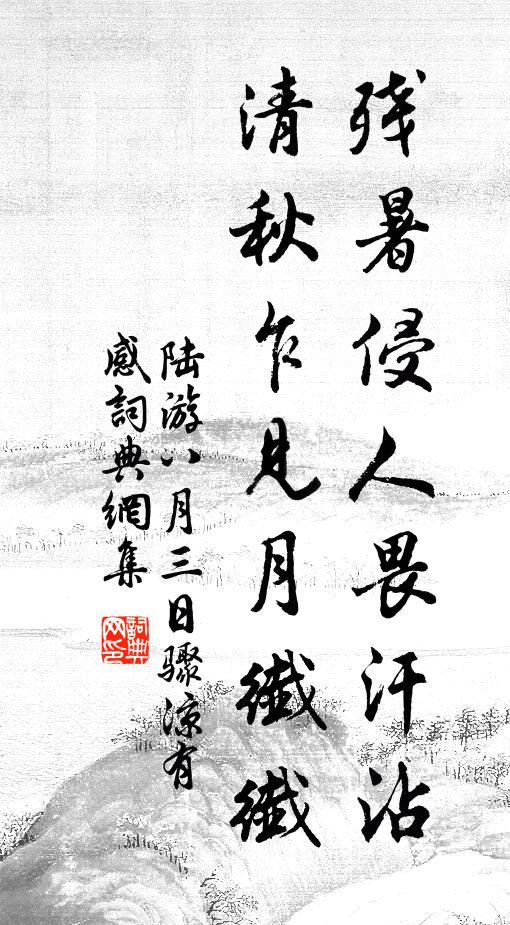 残暑侵人畏汗沾
清秋乍见月纖纖
陆游八月三日骤凉有
感詞典網集
詞典
网印